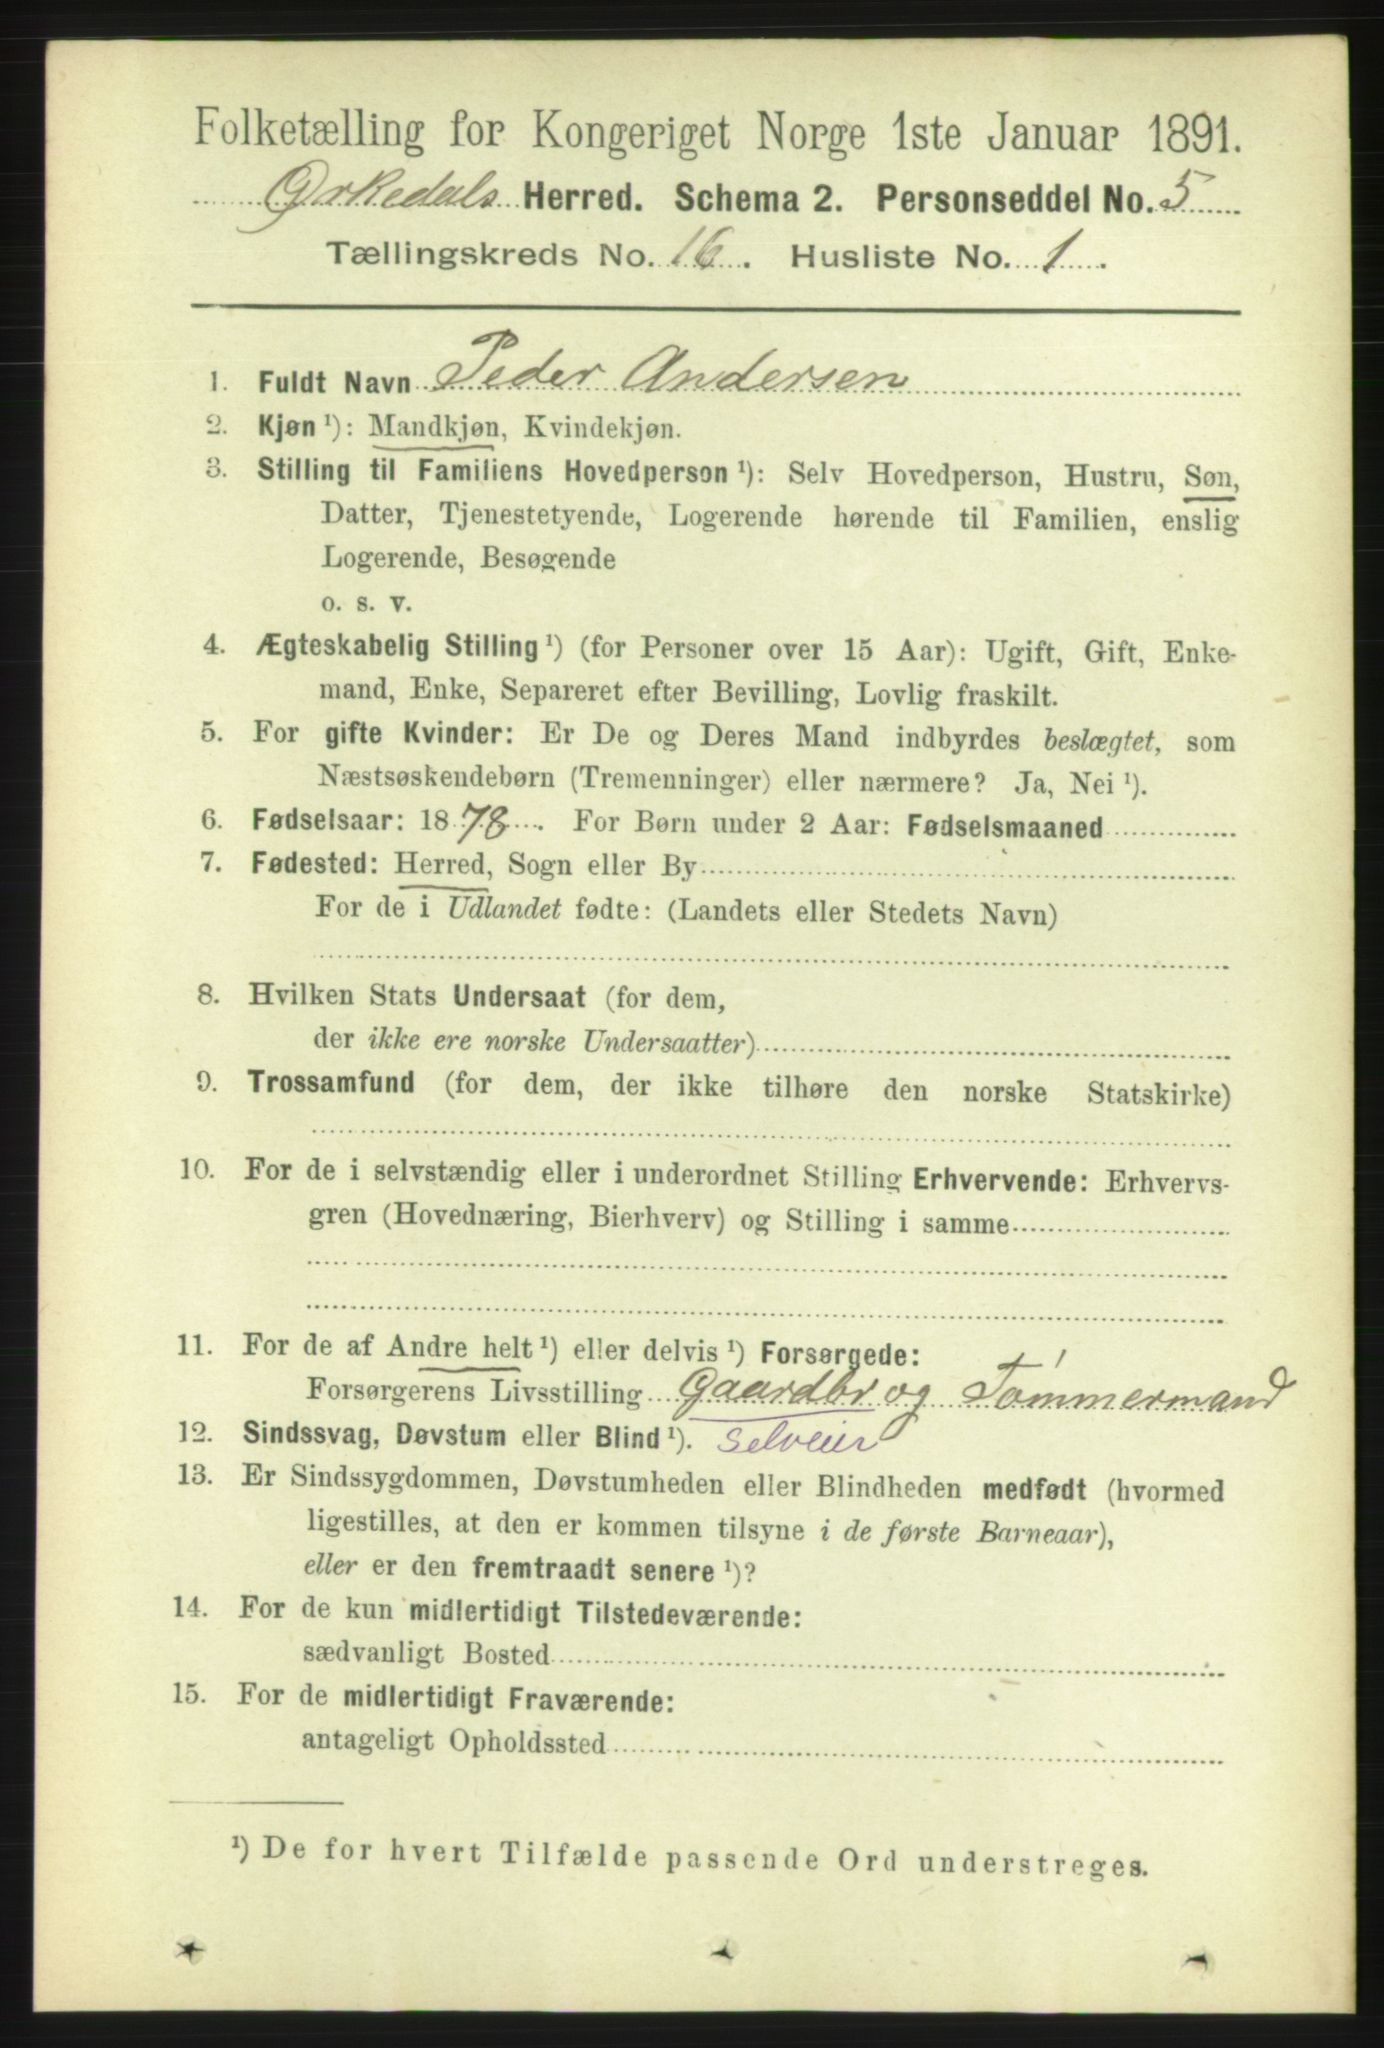 Folketælling for Kongeriget Norge 1ste Januar 1891.
Ørkedals Herred. Schema 2. Personseddel No. 5
Tællingskreds No. 16. Husliste No. 1.
1. Fuldt Navn Peder Andersen
2. Kjøn ¹): Mandkjøn, Kvindekjøn.
3. Stilling til Familiens Hovedperson ¹): Selv Hovedperson, Hustru, Søn,
Datter, Tjenestetyende, Logerende hørende til Familien, enslig
Logerende, Besøgende
o. s. v.
4. Ægteskabelig Stilling ¹) (for Personer over 15 Aar): Ugift, Gift, Enke-
mand, Enke, Separeret efter Bevilling, Lovlig fraskilt.
5. For gifte Kvinder: Er De og Deres Mand indbyrdes beslægtet, som
Næstsøskendebørn (Tremenninger) eller nærmere? Ja, Nei ¹).
6. Fødselsaar: 1878. For Børn under 2 Aar: Fødselsmaaned
7. Fødested: Herred, Sogn eller By
For de i Udlandet fødte: (Landets eller Stedets Navn)
8. Hvilken Stats Undersaat (for dem,
der ikke ere norske Undersaatter)
9. Trossamfund (for dem, der ikke tilhøre den norske Statskirke)
10. For de i selvstændig eller i underordnet Stilling Erhvervende: Erhvervs-
gren (Hovednæring, Bierhverv) og Stilling i samme
11. For de af Andre helt ¹) eller delvis ¹) Forsørgede:
Forsørgerens Livsstilling Gaardbr og Tømmermand
12. Sindssvag, Døvstum eller Blind ¹). selveier
13. Er Sindssygdommen, Døvstumheden eller Blindheden medfødt (hvormed
ligestilles, at den er kommen tilsyne i de første Barneaar),
eller er den fremtraadt senere ¹)?
14. For de kun midlertidigt Tilstedeværende:
sædvanligt Bosted
15. For de midlertidigt Fraværende:
antageligt Opholdssted
¹) De for hvert Tilfælde passende Ord understreges.